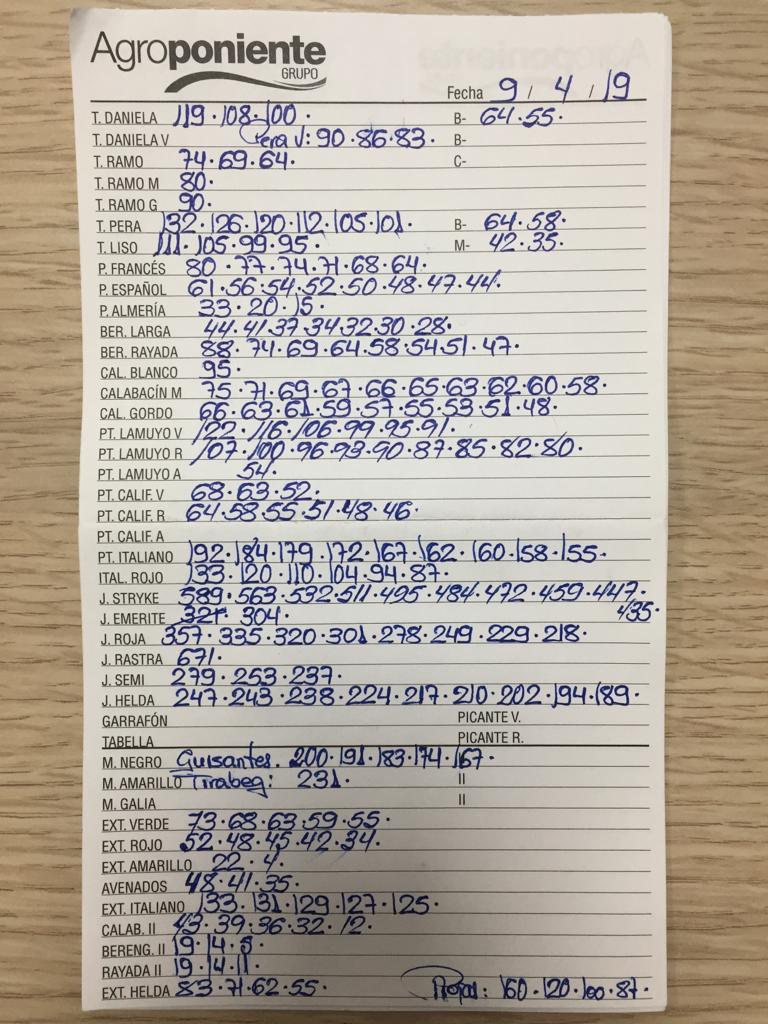 Agroponiente
GRUPO
Fecha 9 / 4 / 19
T. DANIELA 119 · 108 · 100 · B- 64 · 55 ·
T. DANIELA V Pera V: 90 · 86 · 83 · B-
T. RAMO 74 · 69 · 64 · C-
T. RAMO M 80 ·
T. RAMO G 90 ·
T. PERA 132 · 126 · 120 · 112 · 105 · 101 · B- 64 · 58 ·
T. LISO 111 · 105 · 99 · 95 · M- 42 · 35 ·
P. FRANCÉS 80 · 77 · 74 · 71 · 68 · 64 ·
P. ESPAÑOL 61 · 56 · 54 · 52 · 50 · 48 · 47 · 44 ·
P. ALMERÍA 33 · 20 · 15 ·
BER. LARGA 44 · 41 · 37 · 34 · 32 · 30 · 28 ·
BER. RAYADA 88 · 74 · 69 · 64 · 58 · 54 · 51 · 47 ·
CAL. BLANCO 95 ·
CALABACÍN M 75 · 71 · 69 · 67 · 66 · 65 · 63 · 62 · 60 · 58 ·
CAL. GORDO 66 · 63 · 61 · 59 · 57 · 55 · 53 · 51 · 48 ·
PT. LAMUYO V 122 · 116 · 106 · 99 · 95 · 91 ·
PT. LAMUYO R 107 · 100 · 96 · 93 · 90 · 87 · 85 · 82 · 80 ·
PT. LAMUYO A 54 ·
PT. CALIF. V 68 · 63 · 52 ·
PT. CALIF. R 64 · 58 · 55 · 51 · 48 · 46 ·
PT. CALIF. A
PT. ITALIANO 192 · 184 · 179 · 172 · 167 · 162 · 160 · 158 · 155 ·
ITAL. ROJO 133 · 120 · 110 · 104 · 94 · 87 ·
J. STRYKE 589 · 563 · 532 · 511 · 495 · 484 · 472 · 459 · 447 ·
435 ·
J. EMERITE 321 · 304 ·
J. ROJA 357 · 335 · 320 · 301 · 278 · 249 · 229 · 218 ·
J. RASTRA 671 ·
J. SEMI 279 · 253 · 237 ·
J. HELDA 247 · 243 · 238 · 224 · 217 · 210 · 202 · 194 · 189 ·
GARRAFÓN PICANTE V.
TABELLA PICANTE R.
M. NEGRO Guisantes. 200 · 191 · 183 · 174 · 167 ·
M. AMARILLO Tirabeq: 231 · II
M. GALIA II
EXT. VERDE 73 · 68 · 63 · 59 · 55 ·
EXT. ROJO 52 · 48 · 45 · 42 · 34 ·
EXT. AMARILLO 22 · 4 ·
AVENADOS 48 · 41 · 35 ·
EXT. ITALIANO 133 · 131 · 129 · 127 · 125 ·
CALAB. II 43 · 39 · 36 · 32 · 12 ·
BERENG. II 19 · 14 · 5 ·
RAYADA II 19 · 14 · 11 ·
EXT. HELDA 83 · 71 · 62 · 55 · 160 · 120 · 100 · 87 ·